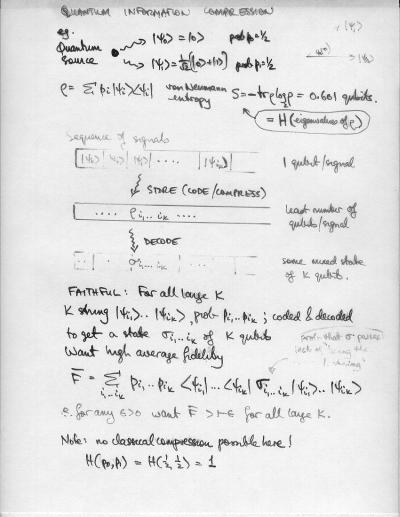 QUANTUM INFORMATION COMPRESSION
eg.
Quantum source
|ψ₀⟩ = |0⟩ prob p₀=1/2
|ψ₁⟩ = 1/√2(|0⟩+|1⟩) prob p₁=1/2
|ψ₁⟩
|ψ₀⟩
ρ = Σ pᵢ|ψᵢ⟩⟨ψᵢ| von Neumann entropy S = -tr ρ log ρ = 0.601 qubits.
= H(eigenvalues of ρ)
Sequence of signals
|ψᵢ₁⟩ |ψᵢ₂⟩ |ψᵢ₃⟩ .... |ψᵢₖ⟩ 1 qubit/signal
STORE (CODE/COMPRESS)
.... ρᵢ₁...ᵢₖ .... least number of qubits/signal
DECODE
σᵢ₁...ᵢₖ some mixed state of K qubits.
FAITHFUL: For all large K
K string |ψᵢ₁⟩..|ψᵢₖ⟩, prob pᵢ₁..pᵢₖ ; coded & decoded
to get a state σᵢ₁..ᵢₖ of K qubits
Want high average fidelity
prob that σ passes
F̄ = Σᵢ₁..ᵢₖ pᵢ₁..pᵢₖ ⟨ψᵢ₁|...⟨ψᵢₖ| σᵢ₁..ᵢₖ |ψᵢ₁⟩..|ψᵢₖ⟩
for any ε>0 want F̄ > 1-ε for all large K.
Note: no classical compression possible here!
H(p₀,p₁) = H(½,½) = 1